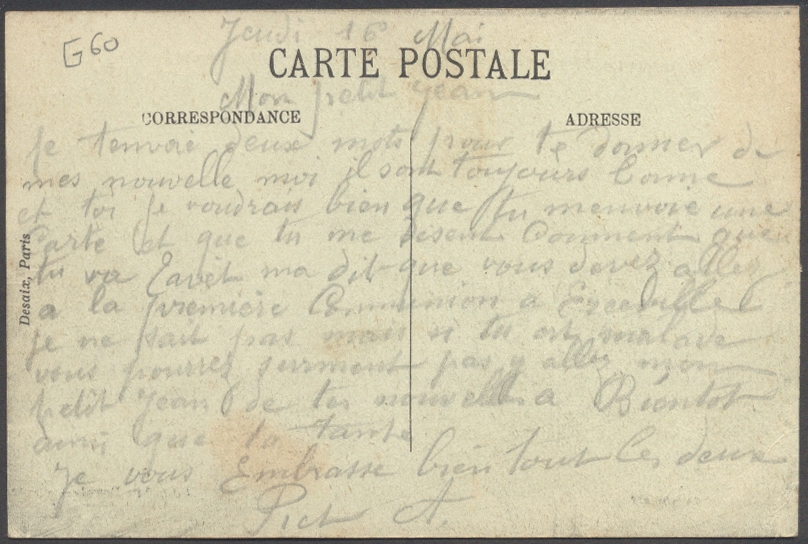 G60
Jeudi 16 Mai
CARTE POSTALE
Mon petit Jean
CORRESPONDANCE
ADRESSE
je tenvoie deux mots pour te donner de
mes nouvelle moi il sont toujours bonne
et toi je voudrais bien que tu menvoie une
Carte et que tu me disent Comment que
tu va ma dit que vous devez aller
a la première Communion a
je ne sait pas mais si tu est malade
vous pourrez surment pas y aller mon
petit Jean de tes nouvelle a Bientot
ainsi que ta tante
je vous Embrasse bien tout les deux
A.
Desaix, Paris